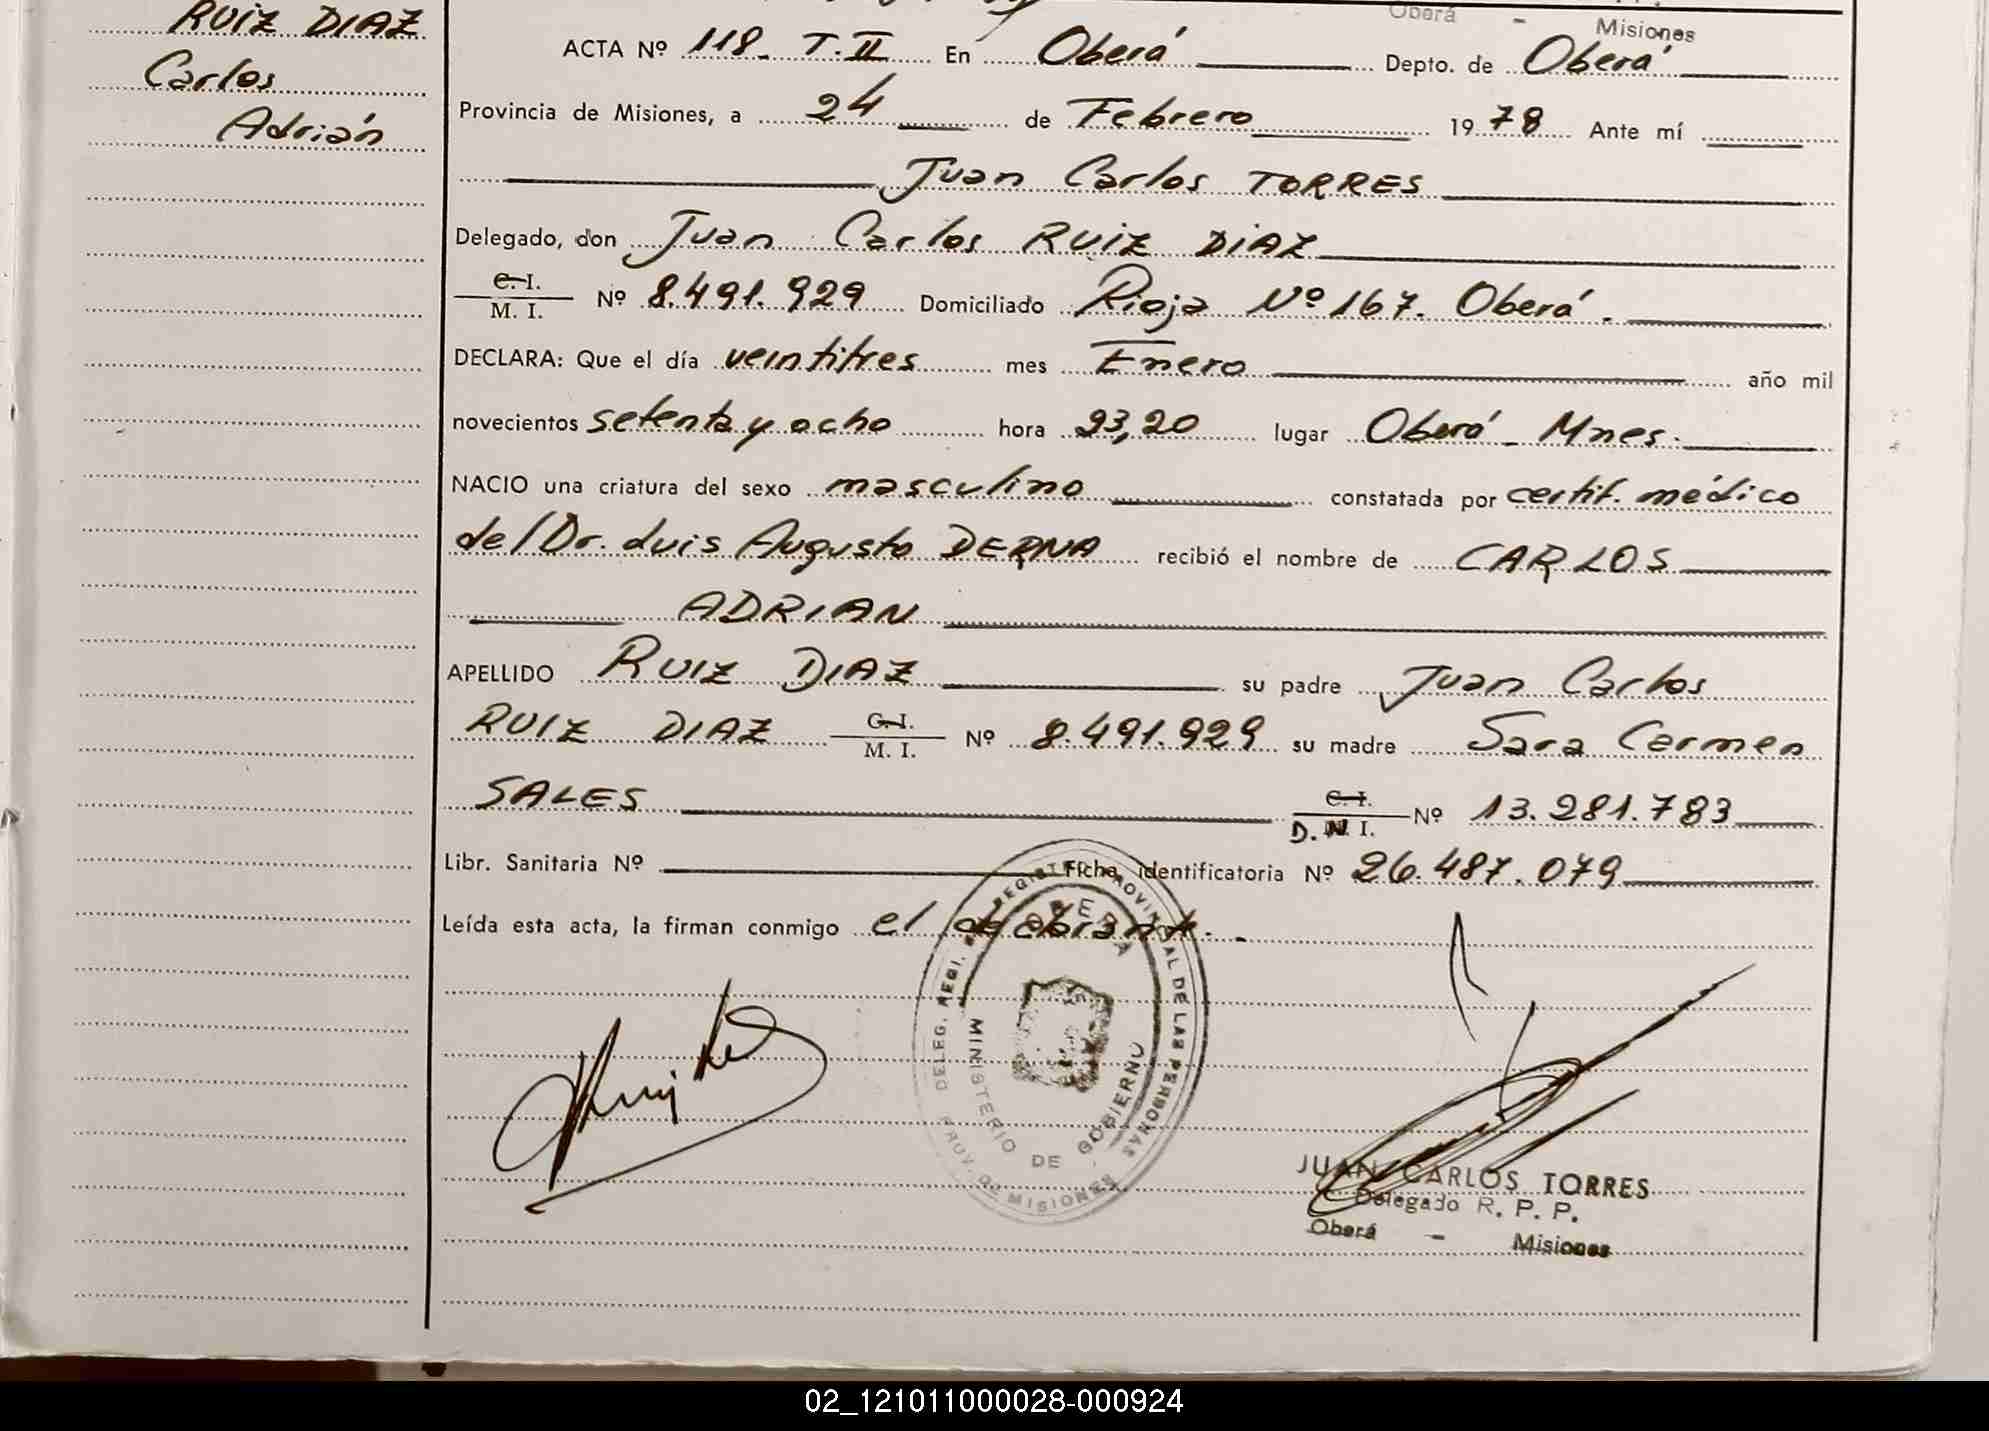 Oberá - Misiones
RUIZ DIAZ
Carlos
Adrián
ACTA Nº 118- T.II En Oberá Depto. de Oberá
Provincia de Misiones, a 24 de Febrero 1978 Ante mí
Juan Carlos TORRES
Delegado, don Juan Carlos RUIZ DIAZ
C. I.
M. I. Nº 8.491.929 Domiciliado Rioja Nº 167. Oberá.
DECLARA: Que el día veintitres mes Enero año mil
novecientos setenta y ocho hora 23,20 lugar Oberá - Mnes.
NACIO una criatura del sexo masculino constatada por certif. médico
del Dr. Luis Augusto DERNA recibió el nombre de CARLOS
ADRIAN
APELLIDO RUIZ DIAZ su padre Juan Carlos
RUIZ DIAZ C. I.
M. I. Nº 8.491.929 su madre Sara Carmen
SALES C. I.
D. N. I. Nº 13.281.783
Libr. Sanitaria Nº Ficha identificatoria Nº 26.487.079
Leída esta acta, la firman conmigo el declarante.-
OBERA
MINISTERIO DE GOBIERNO
PROV. DE MISIONES
JUAN CARLOS TORRES
Delegado R. P. P.
Oberá - Misiones
02_121011000028-000924